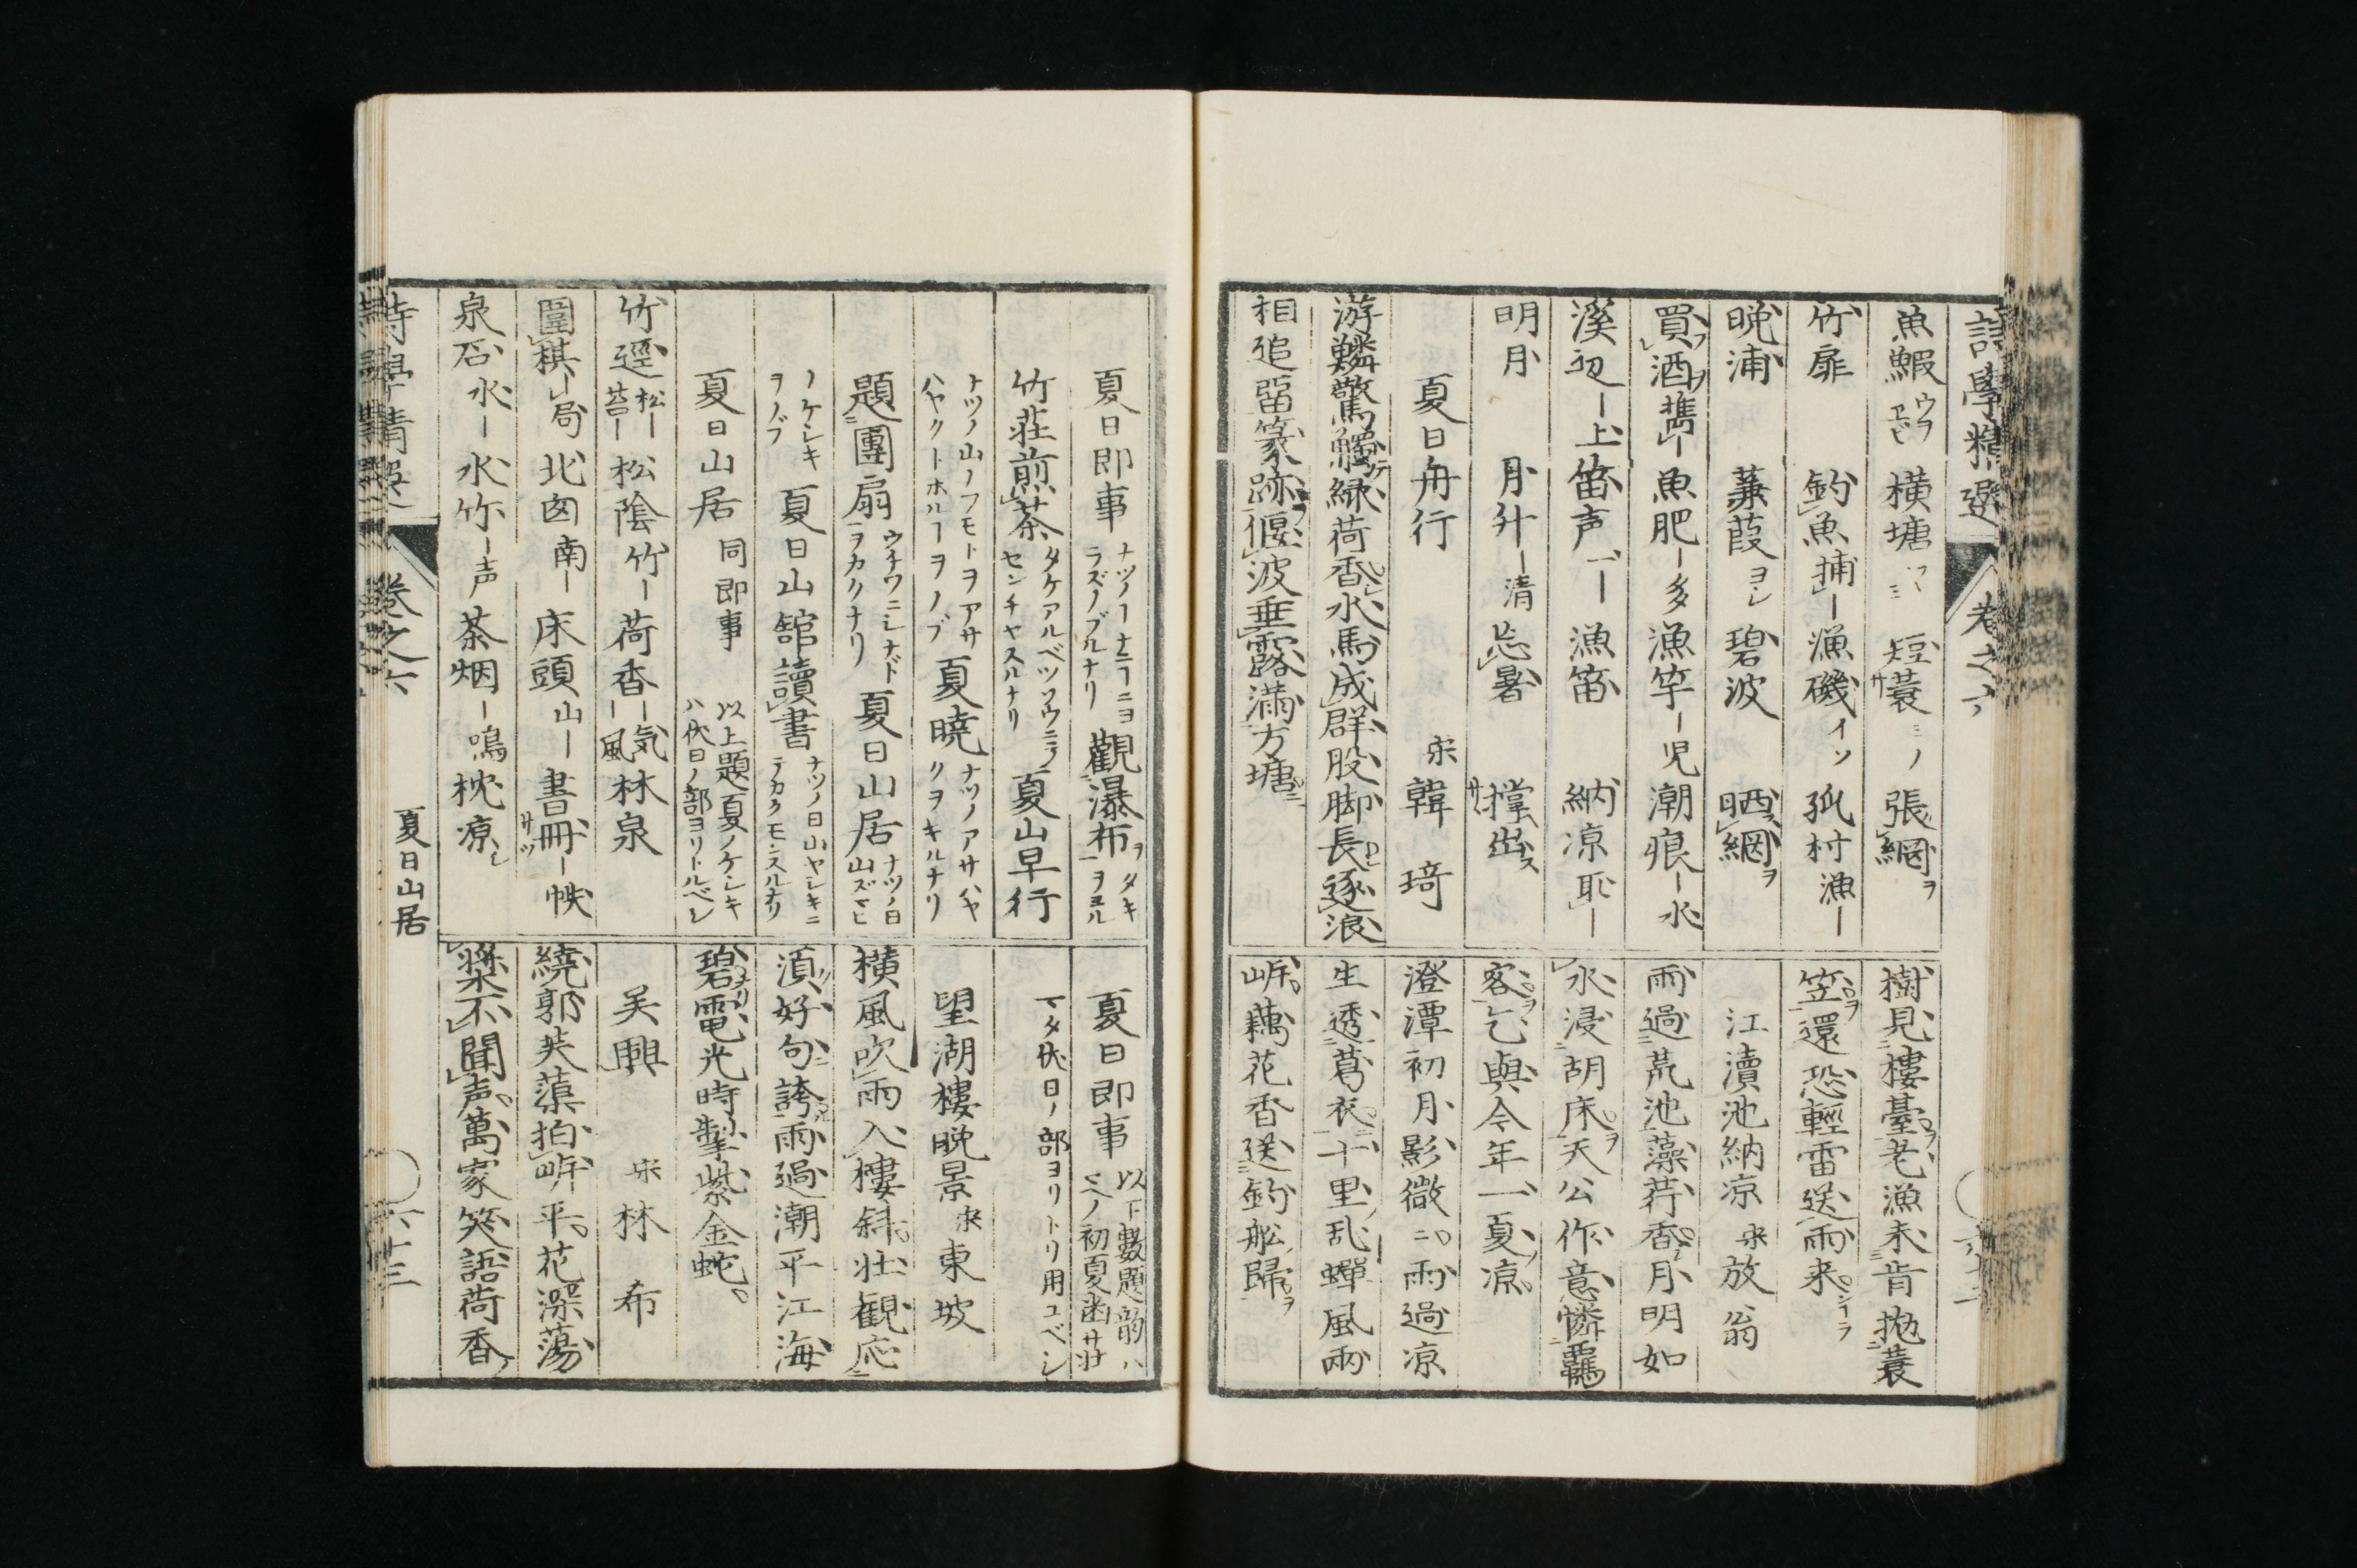 詩學精選
卷之六
魚鰕ウヲヱビ 横塘 短蓑 張網ヲ
竹扉 釣魚捕ー 漁磯イソ 孤村漁ー
晩浦 蒹葭ヨシ 碧波 晒網ヲ
買酒携ー 魚肥ー多 漁竿ー児 潮痕ー水
溪辺ー上 笛声 漁笛 納凉恥ー
明月 月升ー清 忘暑 撑出ス
夏日舟行 宋 韓琦
游鱗驚觸緑荷香水馬成群股脚長逐浪
相追留篆跡偃波垂露満方塘
樹見樓臺老漁未肯抛蓑
笠還恐輕雷送雨来
江瀆池納凉 宋 放翁
雨過荒池藻荇香月明如
水浸胡床天公作意憐羈
客乞與今年一夏凉
澄潭初月影微二雨過凉
生透葛衣十里乱蝉風両
岍藕花香送釣舩歸
夏日即事 觀瀑布
竹荘煎茶 夏山早行
ナツノ山ノフモトヲアサハヤクトホルヿヲノブ 夏曉ナツノアサハヤクヲキルナリ
題團扇ウチワニシナドヲカクナリ 夏日山居ナツノ日山ズマヒ
ノケシキヲノブ 夏日山舘讀書
夏日山居同即事 以上題夏ノケシキハ伏日ノ部ヨリトルベシ
竹逕松ー苔ー 松陰竹ー 荷香ー気ー風 林泉
圍棋ー局 北囱南ー 床頭山ー 書冊ー帙
泉石水ー 水竹ー声 茶烟ー鳴 枕凉
夏日即事以下數題韵ハ
マタ伏日ノ部ヨリトリ用ユベシ
望湖樓晩景 宋 東坡
横風吹雨入樓斜壮観応
須好句誇雨過潮平江海
碧電光時掣紫金蛇
吴興 宋 林希
繞郭芙蕖拍岍平花深蕩
槳不聞声萬家笑語荷香
詩學精選
卷之六
夏日山居
六十三